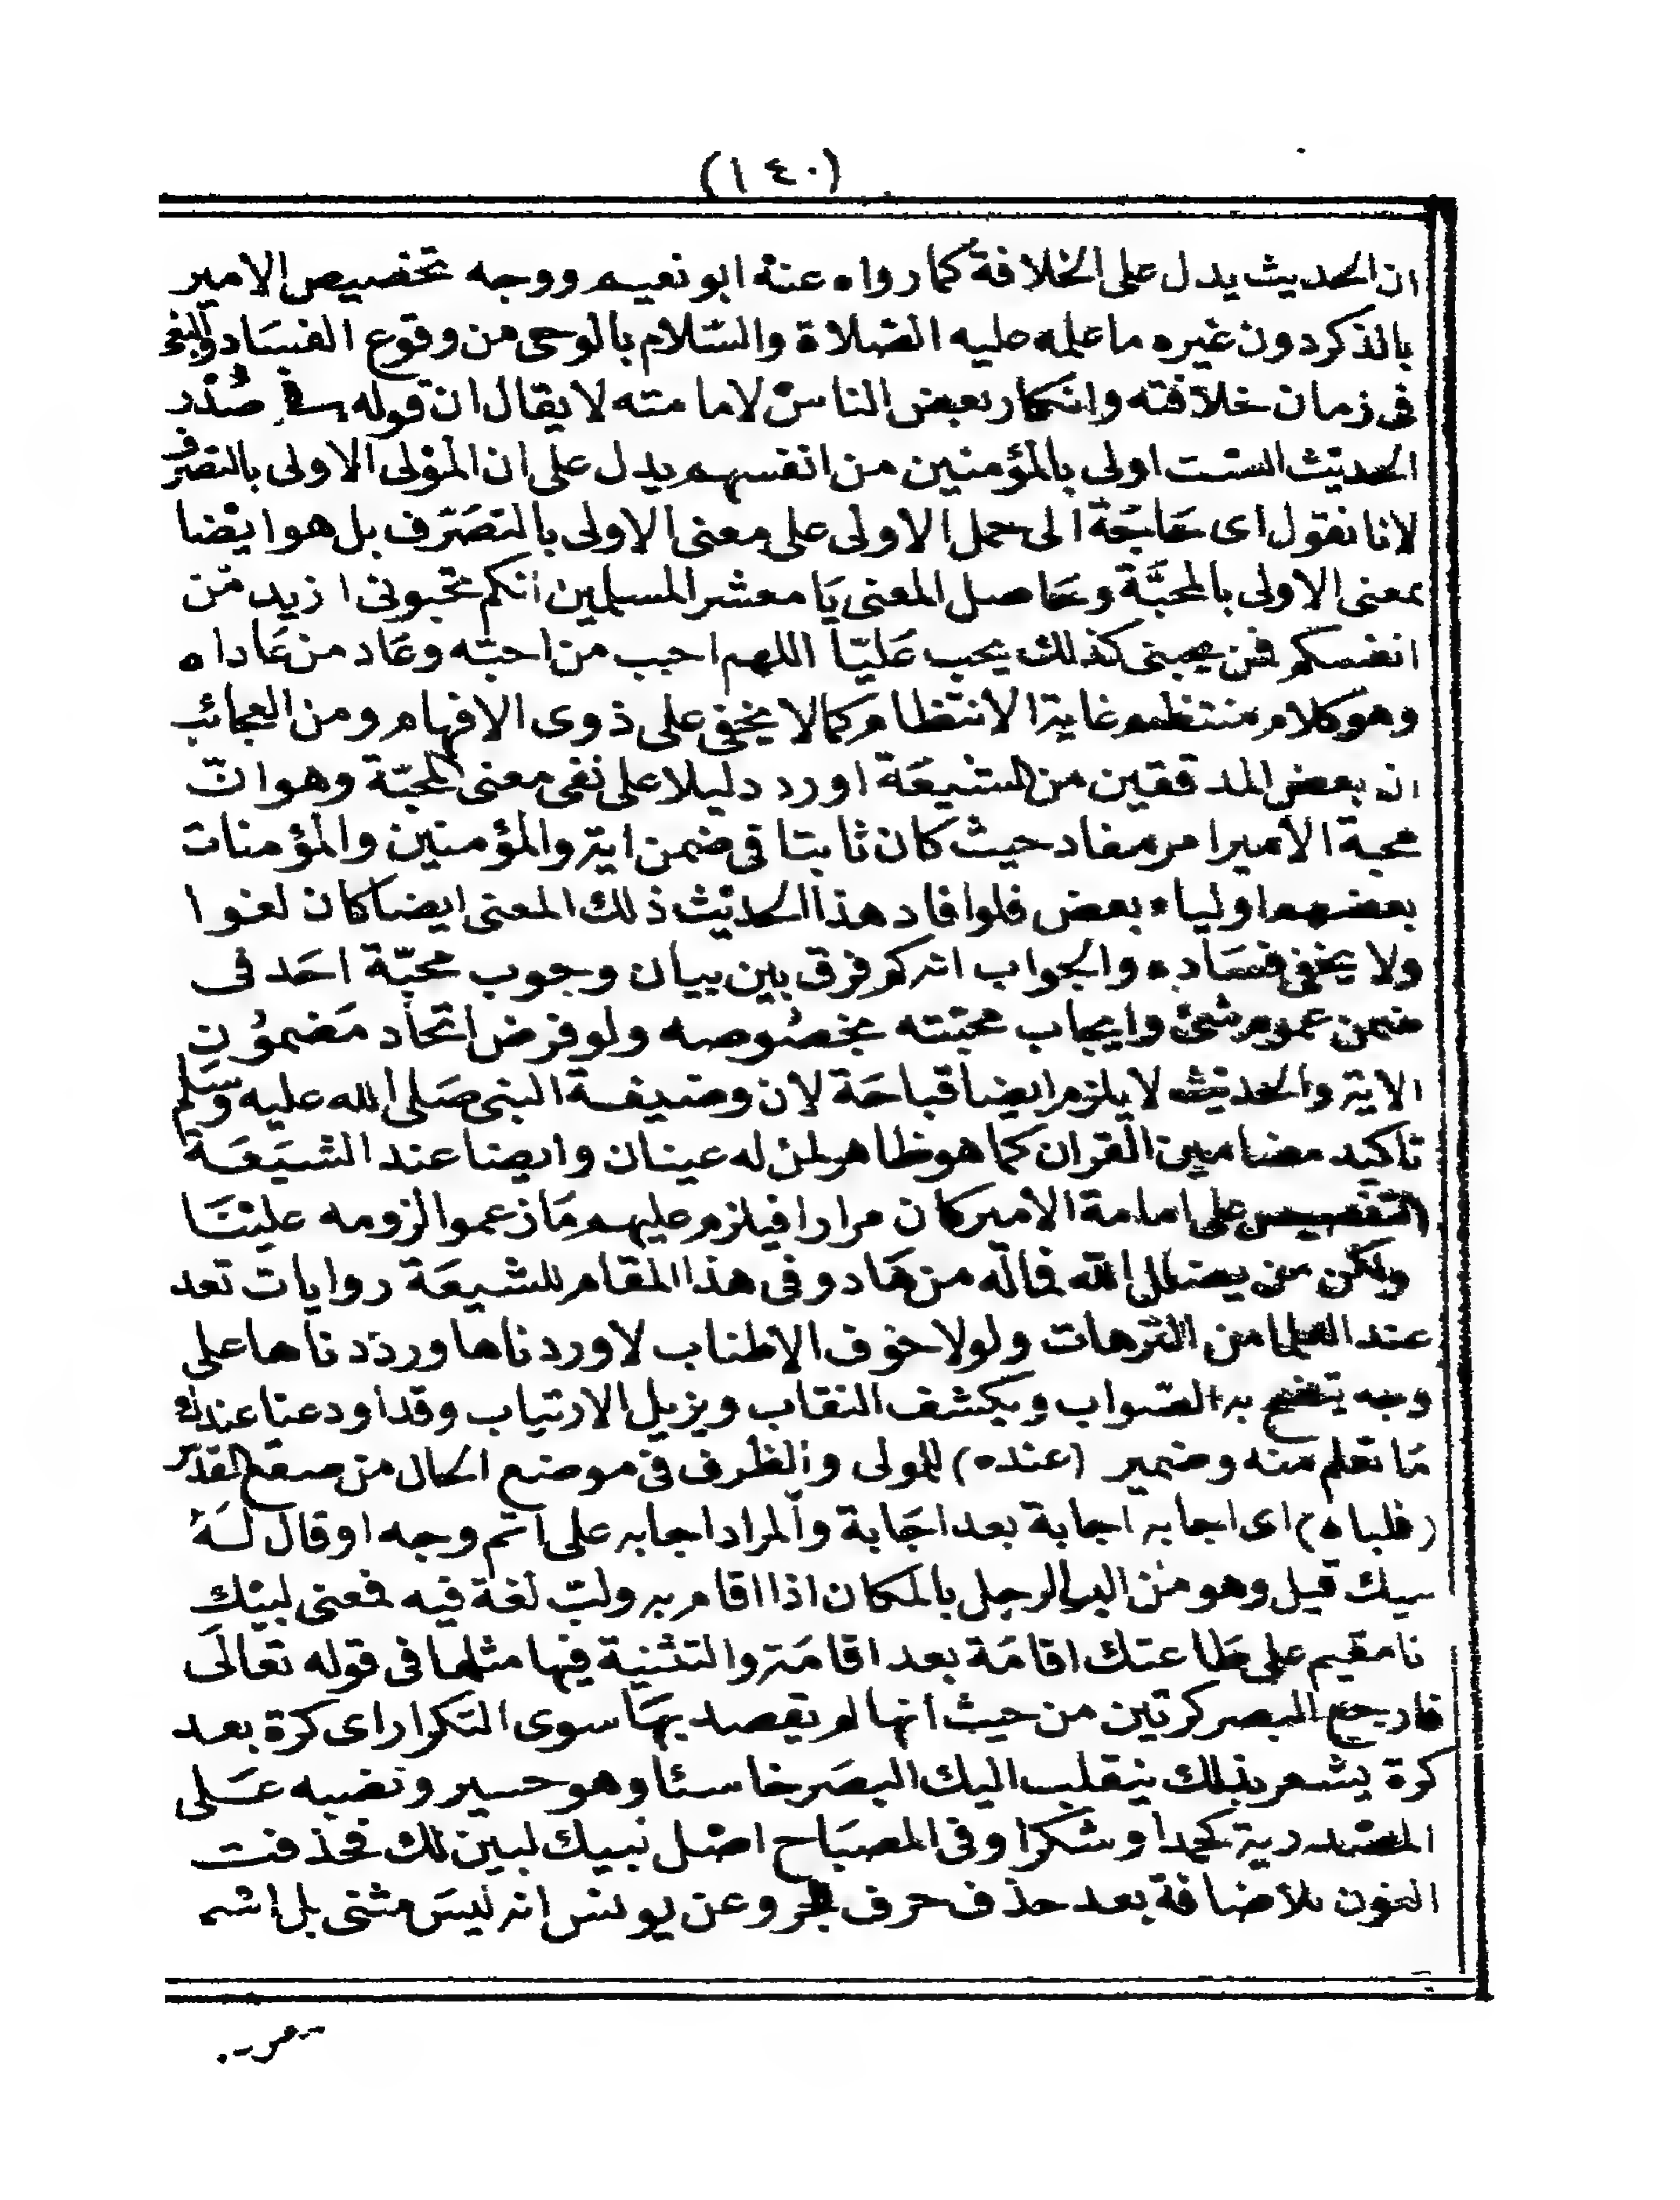 (١٤٠)
ان الحديث يدل على الخلافة كما رواه عنه ابو نعيم ووجه تخصيص الامير
بالذكر دون غيره ما علمه عليه الصلاة والسلام بالوحى من وقوع الفساد والبغى
فى زمان خلافته وانكار بعض الناس لامامته لا يقال ان قوله فى صدر
الحديث الست اولى بالمؤمنين من انفسهم يدل على ان المولى الاولى بالتصرف
لانا نقول اى حاجة الى حمل الاولى على معنى الاولى بالتصرف بل هو ايضا
بمعنى الاولى بالمحبَّة وحاصل المعنى يا معشر المسلمين انكم تحبونى ازيد من
انفسكم فمن يحبنى كذلك يحب عليّا اللهم احب من احبّه وعاد من عاداه
وهو كلام منتظم غاية الانتظام كما لا يخفى على ذوى الافهام ومن العجائب
ان بعض المدققين من الشيعة اورد دليلا على نفى معنى المحبّة وهو انّ
محبة الامير امر مفاد حيث كان ثابتا فى ضمن اية والمؤمنين والمؤمنات
بعضهم اولياء بعض فلو افاد هذا الحديث ذلك المعنى ايضا كان لغوا
ولا يخفى فساده والجواب انه كم فرق بين بيان وجوب محبّة احد فى
ضمن عموم شئ وايجاب محبّته بخصوصه ولو فرض اتحاد مضمون
الاية والحديث لا يلزم ايضا قباحة لان وضيفة النبى صلى الله عليه وسلم
تاكيد مضامين القران كما هو ظاهر لمن له عينان وايضا عند الشيعة
التنصيص على امامة الامير كان مرارا فيلزم عليهم ما زعموا لزومه علينا
ولكن من يضلل الله فماله من هاد وفى هذا المقام للشيعة روايات تعد
عند العلما من الترهات ولولا خوف الاطناب لاوردناها ورددناها على
وجه يتضح به الصّواب ويكشف النقاب ويزيل الارتياب وقد اودعنا عندك
ما تعلم منه وضمير (عنده) للمولى والظرف فى موضع الحال من صقع القدس
(فلباه) اى اجابه اجابة بعد اجابة والمراد اجابه على اتم وجه او قال له
بيك قيل وهو من الب الرجل بالمكان اذا اقام به ولبّ لغة فيه فمعنى لبيك
نا مقيم على طاعتك اقامة بعد اقامة والتثنية فيها مثلها فى قوله تعالى
فارجع البصر كرتين من حيث انها لم يقصد بها سوى التكرار اى كرة بعد
كرة يشعر بذلك ينقلب اليك البصر خاسئا وهو حسير ونصبه على
المصدرية كحمدا وشكرا وفى المصباح اصل لبيك لبين لك فحذفت
النون للاضافة بعد حذف حرف الجر وعن يونس انه ليس مثنى بل اسم